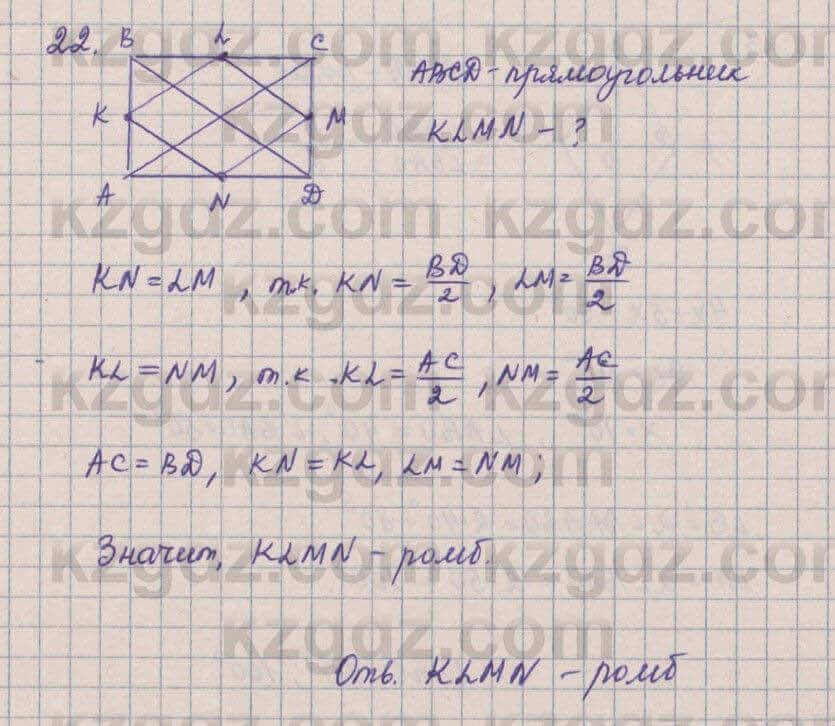 22. B L C
ABCD - прямоугольник
K M
KLMN - ?
A N D
KN = LM, т.к. KN = BD/2, LM = BD/2
KL = NM, т.к. KL = AC/2, NM = AC/2
AC = BD, KN = KL, LM = NM;
Значит, KLMN - ромб.
Отв. KLMN - ромб
kzgdz.com